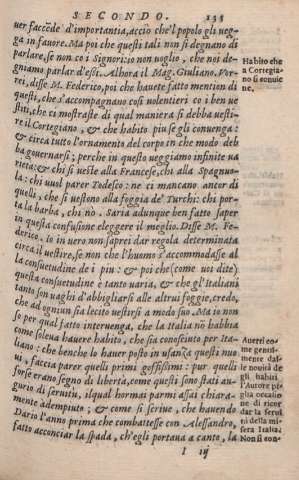 SECONDO. 133
uer faccēde d'importantia, acciò che'l popolo gli ueg-
ga in fauore. Ma poi che questi tali non si degnano di
parlare, se non co i Signori: io non uoglio, che noi de-
gniamo parlar d'essi. Alhora il Mag. Giuliano. Vor-
rei, disse M. Federico, poi che hauete fatto mention di
questi, che s'accompagnano cosi uolentieri co i ben ue
stiti, che ci mostraste di qual maniera si debba uesti-
re il Cortegiano, & che habito piu se gli conuenga:
& circa tutto l'ornamento del corpo in che modo deb
ba gouernarsi; perche in questo ueggiamo infinite ua
rietà: & chi si ueste alla Francese, chi alla Spagnuo-
la: chi uuol parer Todesco: ne ci mancano ancor di
quelli, che si uestono alla foggia de' Turchi: chi por-
ta la barba, chi nò. Saria adunque ben fatto saper
in questa confusione eleggere il meglio. Disse M. Fe-
derico, io in uero non saprei dar regola determinata
circa il uestire, se non che l'huomo s'accommodasse al
la consuetudine de i piu: & poi che (come uoi dite)
questa consuetudine è tanto uaria, & che gl'Italiani
tanto son uaghi d'abbigliarsi alle altrui foggie, credo,
che ad ogniun sia lecito uestirsi a modo suo. Ma io non
so per qual fatto interuenga, che la Italia nō habbia
come soleua hauere habito, che sia conosciuto per Ita-
liano: che benche lo hauer posto in usanza questi nuo
ui, faccia parer quelli primi goffissimi: pur quelli
forse erano segno di libertà, come questi sono stati au-
gurio di seruitù, ilqual hormai parmi assai chiara-
mente adempiuto; & come si scriue, che hauendo
Dario l'anno prima che combattesse con Alessandro,
fatto acconciar la spada, ch'egli portaua a canto, la
I ij
Habito che
a Cortegia-
no si conuie
ne.
Auertì co-
me gentil-
mente dal-
le nouità de
gli habiti
l'Autore pi
glia occasio
ne di ricor
dar la serui
tù della mi-
sera Italia.
Non si con-